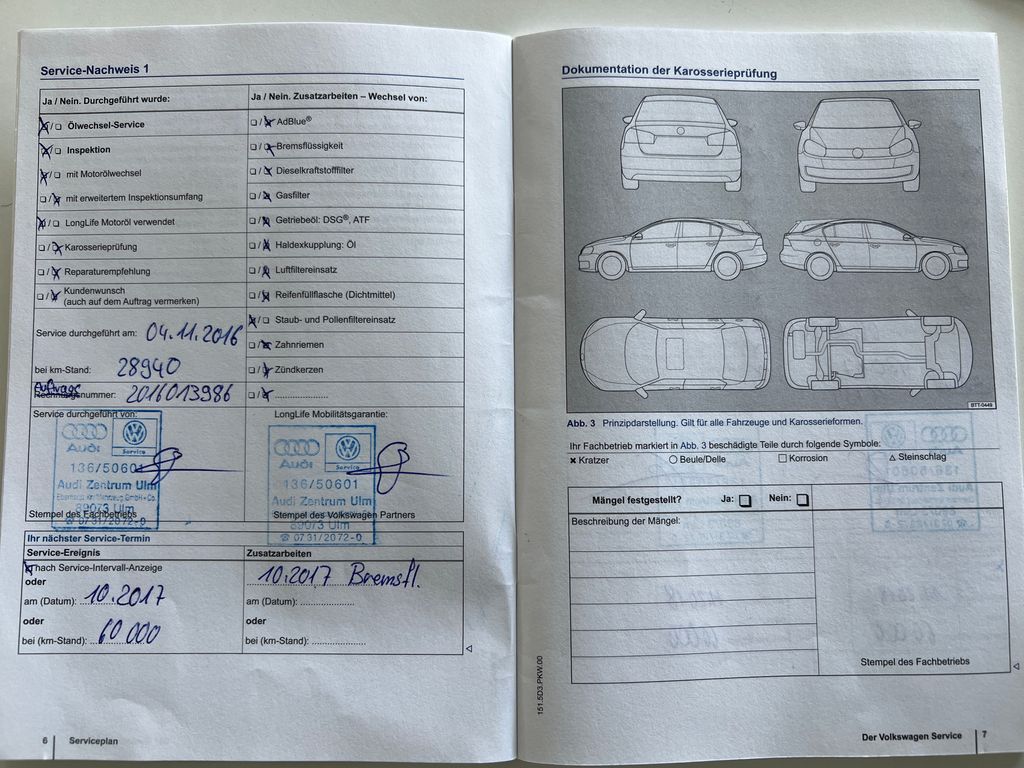 Service-Nachweis 1
Ja / Nein. Durchgeführt wurde:
Ölwechsel-Service
Inspektion
mit Motorölwechsel
mit erweitertem Inspektionsumfang
LongLife Motoröl verwendet
Karosserieprüfung
Reparaturempfehlung
Kundenwunsch
(auch auf dem Auftrag vermerken)
Service durchgeführt am: 04.11.2016
bei km-Stand: 28940
Auftrags
Rechnungsnummer: 2016013986
Ja / Nein. Zusatzarbeiten – Wechsel von:
AdBlue®
Bremsflüssigkeit
Dieselkraftstofffilter
Gasfilter
Getriebeöl: DSG®, ATF
Haldexkupplung: Öl
Luftfiltereinsatz
Reifenfüllflasche (Dichtmittel)
Staub- und Pollenfiltereinsatz
Zahnriemen
Zündkerzen
Service durchgeführt von:
Audi Service
136/50601
Audi Zentrum Ulm
89073 Ulm
☎ 0731/2072-0
Stempel des Fachbetriebs
LongLife Mobilitätsgarantie:
Audi Service
136/50601
Audi Zentrum Ulm
89073 Ulm
☎ 0731/2072-0
Stempel des Volkswagen Partners
Ihr nächster Service-Termin
Service-Ereignis
nach Service-Intervall-Anzeige
oder
am (Datum): 10.2017
oder
bei (km-Stand): 60 000
Zusatzarbeiten
10.2017 Bremsfl.
am (Datum): ....................
oder
bei (km-Stand): ....................
6 Serviceplan
Dokumentation der Karosserieprüfung
BTT-0449
Abb. 3 Prinzipdarstellung. Gilt für alle Fahrzeuge und Karosserieformen.
Ihr Fachbetrieb markiert in Abb. 3 beschädigte Teile durch folgende Symbole:
× Kratzer ○ Beule/Delle □ Korrosion △ Steinschlag
Mängel festgestellt? Ja: □ Nein: □
Beschreibung der Mängel:
Stempel des Fachbetriebs
151.5D3.PKW.00
Der Volkswagen Service 7